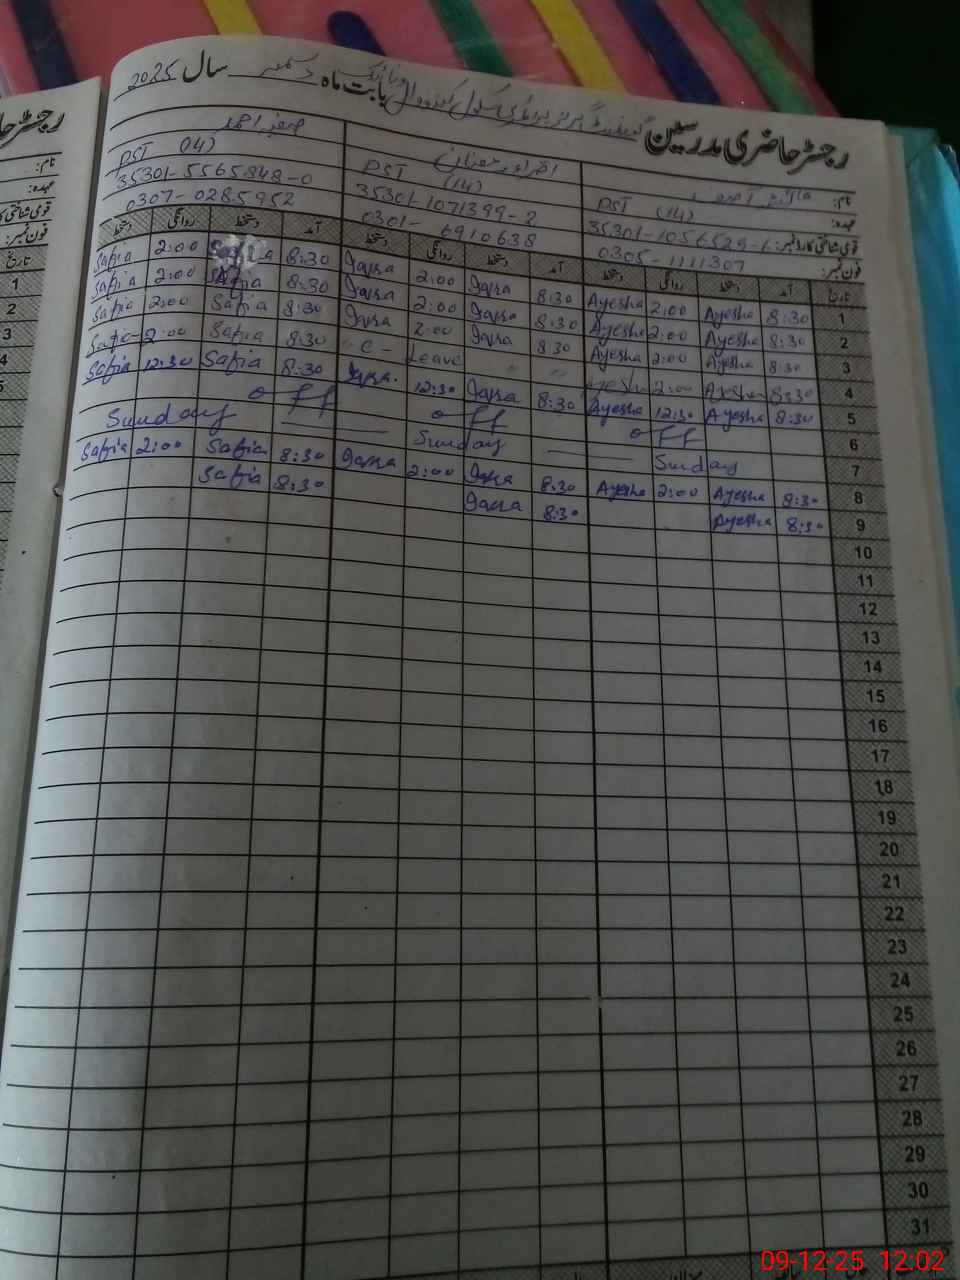 رجسٹر حاضری مدرسین گورنمنٹ گرلز پرائمری سکول بابت ماہ دسمبر سال 2025
نام:
عہدہ: PST (14) PST (14) PST (14)
قومی شناختی کارڈ نمبر: 35301-1056529-6 35301-1071399-2 35301-5565848-0
فون نمبر: 0305-1111307 0301-6910638 0307-0285952
تاریخ آمد دستخط روانگی دستخط آمد دستخط روانگی دستخط آمد دستخط روانگی دستخط
1 8:30 Ayesha 2:00 Ayesha 8:30 Iqra 2:00 Iqra 8:30 Safia 2:00 Safia
2 8:30 Ayesha 2:00 Ayesha 8:30 Iqra 2:00 Iqra 8:30 Safia 2:00 Safia
3 8:30 Ayesha 2:00 Ayesha 8:30 Iqra 2:00 Iqra 8:30 Safia 2:00 Safia
4 8:30 Ayesha 2:00 Ayesha C-Leave 8:30 Safia 2:00 Safia
5 8:30 Ayesha 12:30 Ayesha 8:30 Iqra 12:30 Iqra 8:30 Safia 12:30 Safia
6 off off off
7 Sunday Sunday Sunday
8 8:30 Ayesha 2:00 Ayesha 8:30 Iqra 2:00 Iqra 8:30 Safia 2:00 Safia
9 8:30 Ayesha 8:30 Iqra 8:30 Safia
10
11
12
13
14
15
16
17
18
19
20
21
22
23
24
25
26
27
28
29
30
31
09-12-25 12:02